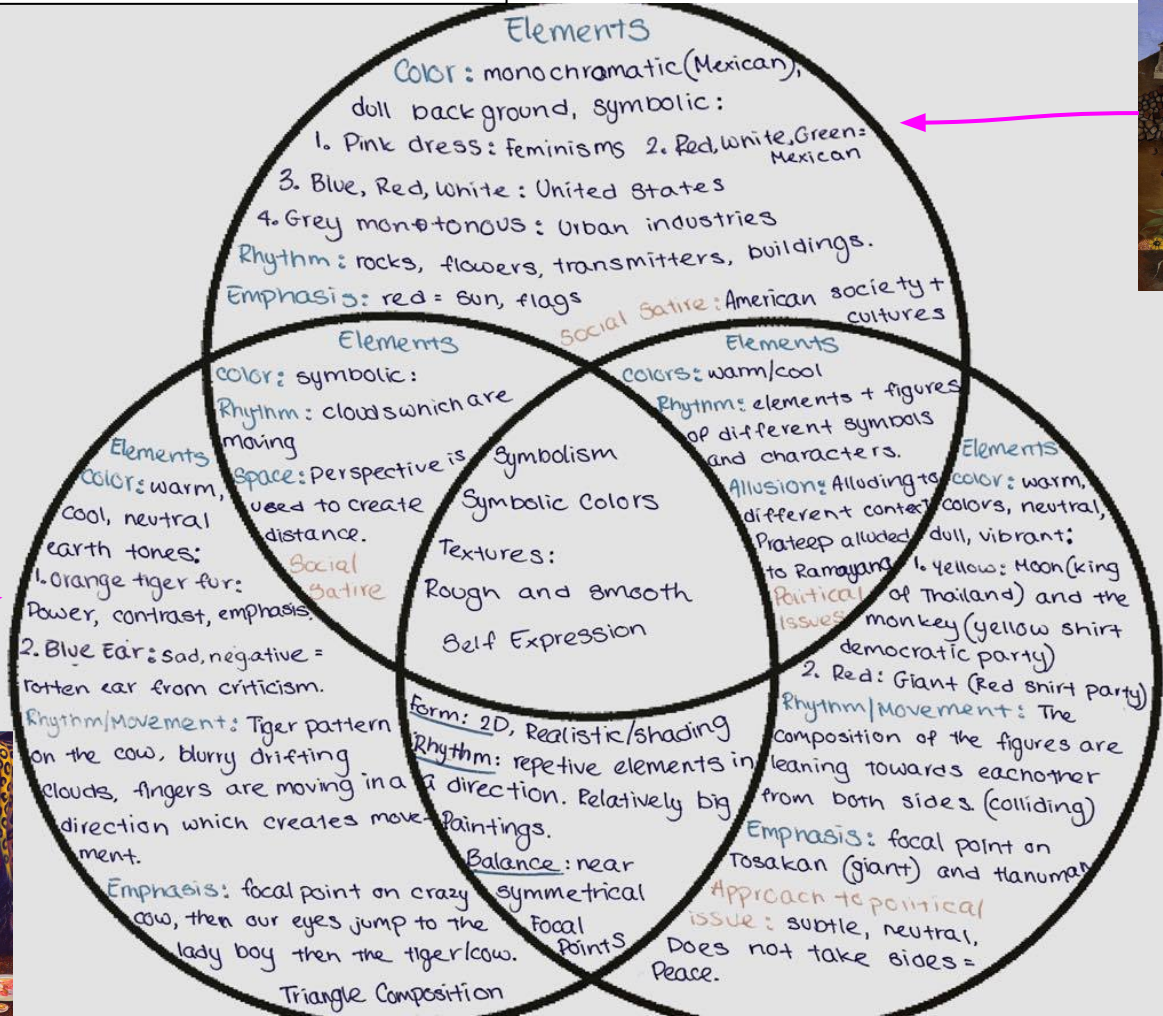 Elements
Color: monochromatic (Mexican),
dull background, symbolic:
1. Pink dress: feminisms 2. Red, White, Green =
Mexican
3. Blue, Red, White: United States
4. Grey monotonous: Urban industries
Rhythm: rocks, flowers, transmitters, buildings.
Emphasis: red = sun, flags
Social Satire: American society +
cultures
Elements
color: symbolic:
Rhythm: clouds which are
moving
Space: Perspective is
used to create
distance.
Social
Satire
Elements
Colors: warm/cool
Rhythm: elements + figures
of different symbols
and characters.
Allusion: Alluding to
different context
Prateep alluded
to Ramayana
Political
Issues
Symbolism
Symbolic Colors
Textures:
Rough and smooth
Self Expression
Elements
Color: warm,
cool, neutral
earth tones:
1. Orange tiger fur:
Power, contrast, emphasis.
2. Blue Ear: Sad, negative =
rotten ear from criticism.
Rhythm/Movement: Tiger pattern
on the cow, blurry drifting
clouds, fingers are moving in a
direction which creates move-
ment.
Emphasis: focal point on crazy
cow, then our eyes jump to the
lady boy then the tiger/cow.
Triangle Composition
Form: 2D, Realistic/shading
Rhythm: repetive elements in
a direction. Relatively big
Paintings.
Balance: near
symmetrical
Focal
Points
Elements
color: warm,
colors, neutral,
dull, vibrant:
1. Yellow: Moon (king
of Thailand) and the
monkey (yellow shirt
democratic party)
2. Red: Giant (Red shirt party)
Rhythm/Movement: The
composition of the figures are
leaning towards eachother
from both sides. (colliding)
Emphasis: focal point on
Tosakan (giant) and Hanuman
Approach to political
issue: subtle, neutral,
Does not take sides =
Peace.